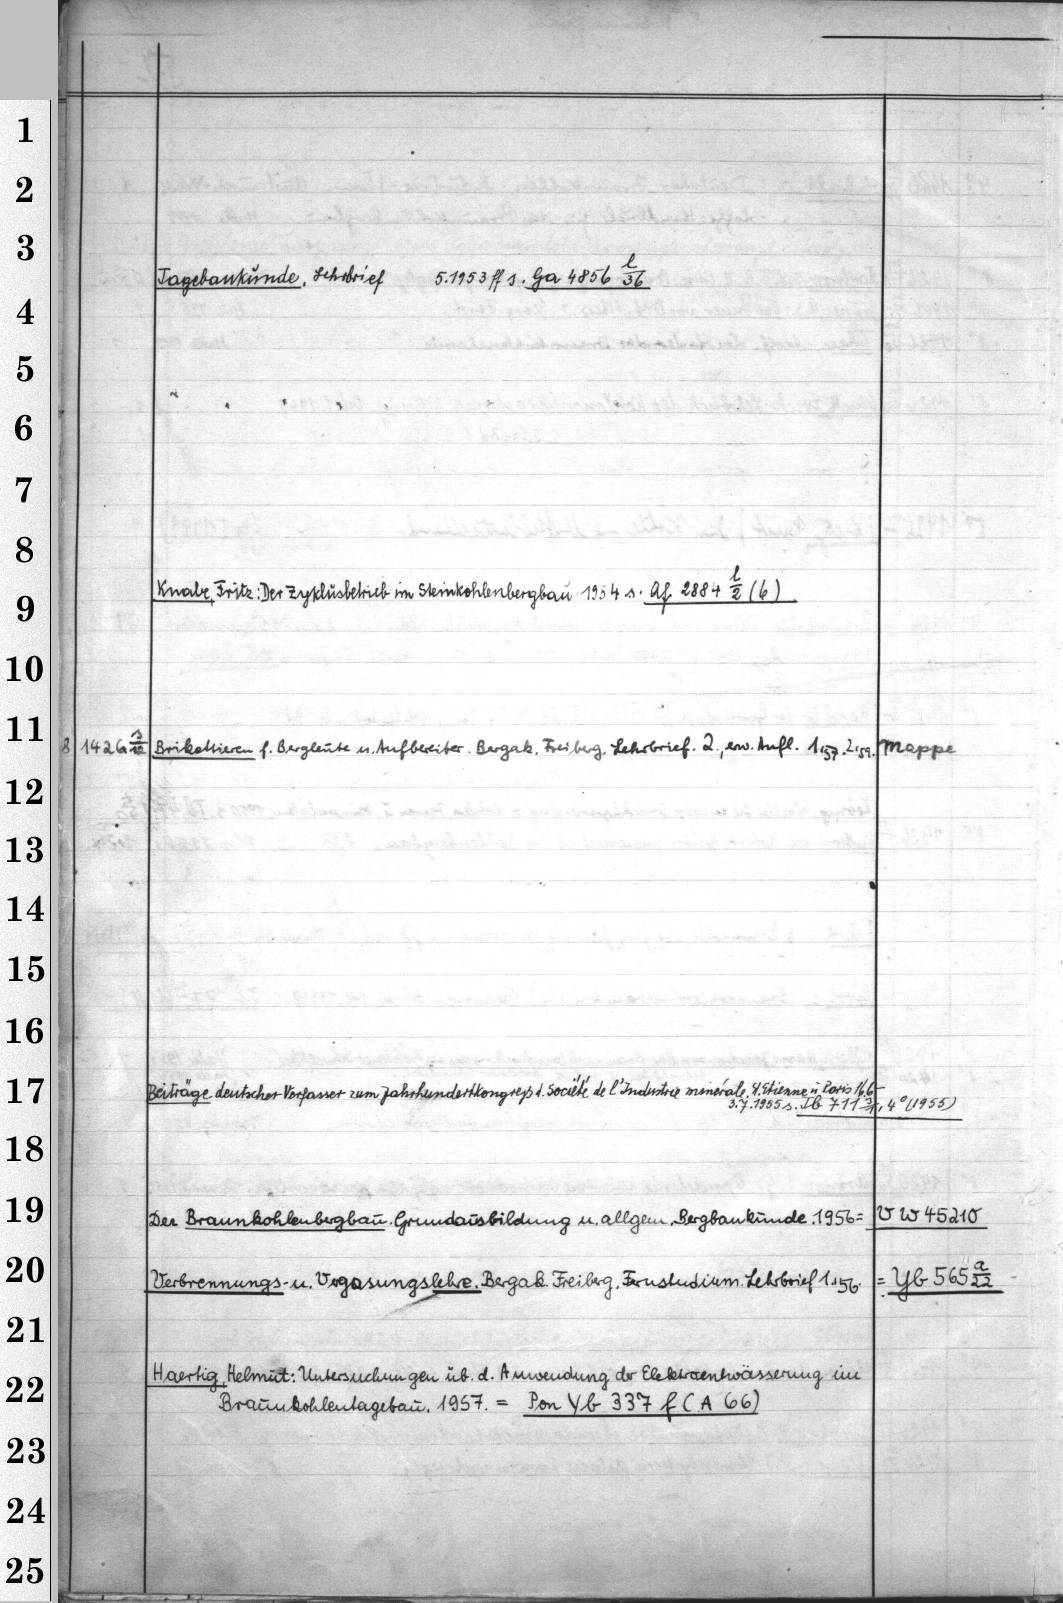 1
2
3
Tagebaukunde, Lehrbrief 5.1953 ff s. Ga 4856 l/36
4
5
6
7
8
Knabe, Fritz: Der Zyklusbetrieb im Steinkohlenbergbau 1954 s. Af 2884 l/2 (6)
9
10
11
8 1426 s/12 Brikettieren f. Bergleute u. Aufbereiter. Bergak. Freiberg, Lehrbrief. 2., erw. Aufl. 1,57. 2,59. Mappe
12
13
14
15
16
17
Beiträge deutscher Verfasser zum Jahrhundertkongreß d. Société de l'Industrie minérale, St. Etienne u. Paris 16.6-
3.7.1955 s. Ib 711, 4° (1955)
18
19
Der Braunkohlenbergbau. Grundausbildung u. allgem. Bergbaukunde. 1956 = V W 45210
20
Verbrennungs- u. Vergasungslehre. Bergak. Freiberg, Fernstudium. Lehrbrief 1.56. = Yb 565 a/22
21
Haertig, Helmut: Untersuchungen üb. d. Anwendung der Elektroentwässerung im
22
Braunkohlentagebau. 1957. = Pon Yb 337 f (A 66)
23
24
25